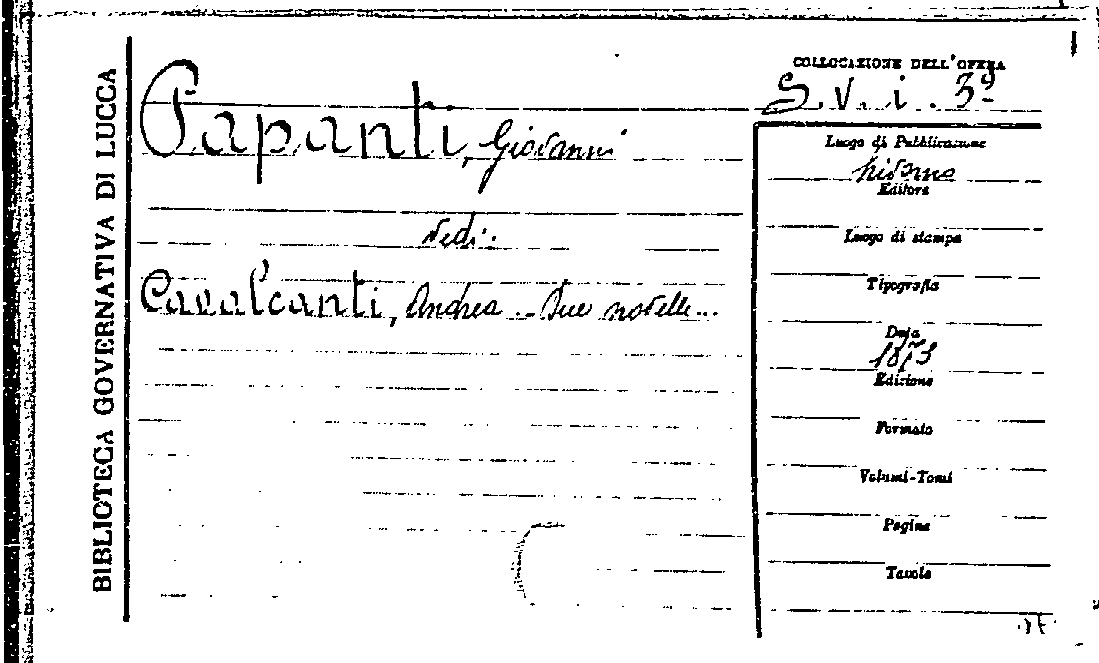 BIBLIOTECA GOVERNATIVA DI LUCCA
COLLOCAZIONE DELL'OPERA
S. V. i. 39
Papanti, Giovanni
Luogo di Pubblicazione
Editore
vedi:
Luogo di stampa
Cavalcanti, Andrea .. Due novelle...
Tipografia
Data
1873
Edizione
Formato
Volumi-Tomi
Pagine
Tavole